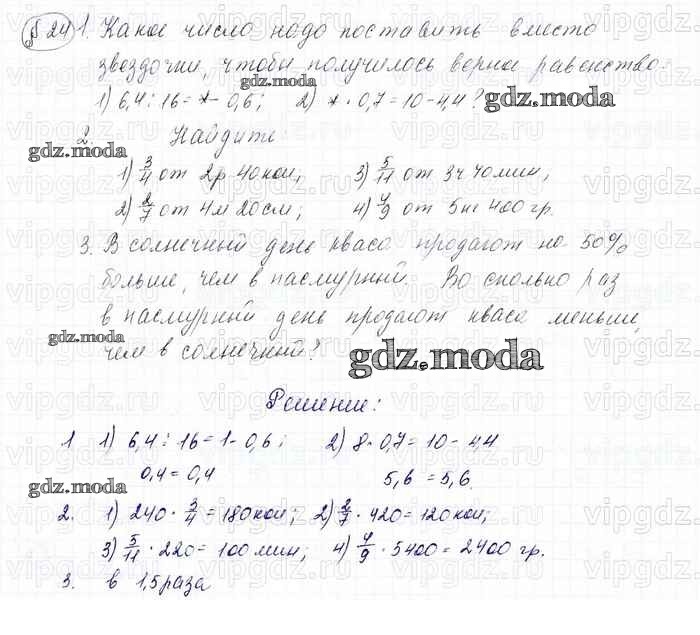 § 24 1. Какое число надо поставить вместо
звездочки, чтобы получилось верное равенство:
1) 6,4 : 16 = * - 0,6; 2) * · 0,7 = 10 - 4,4?
2. Найдите:
1) 3/4 от 2р 40коп; 3) 5/11 от 3ч 40мин;
2) 2/7 от 4м 20см; 4) 4/9 от 5кг 400 гр.
3. В солнечный день кваса продают на 50%
больше, чем в пасмурный. Во сколько раз
в пасмурный день продают кваса меньше,
чем в солнечный?
Решение:
1 1) 6,4 : 16 = 1 - 0,6; 2) 8 · 0,7 = 10 - 4,4
0,4 = 0,4 5,6 = 5,6
2. 1) 240 · 3/4 = 180коп; 2) 2/7 · 420 = 120коп;
3) 5/11 · 220 = 100 мин; 4) 4/9 · 5400 = 2400 гр.
3. в 1,5 раза
gdz.moda
gdz.moda
gdz.moda
gdz.moda
gdz.moda
gdz.moda
vipgdz.ru